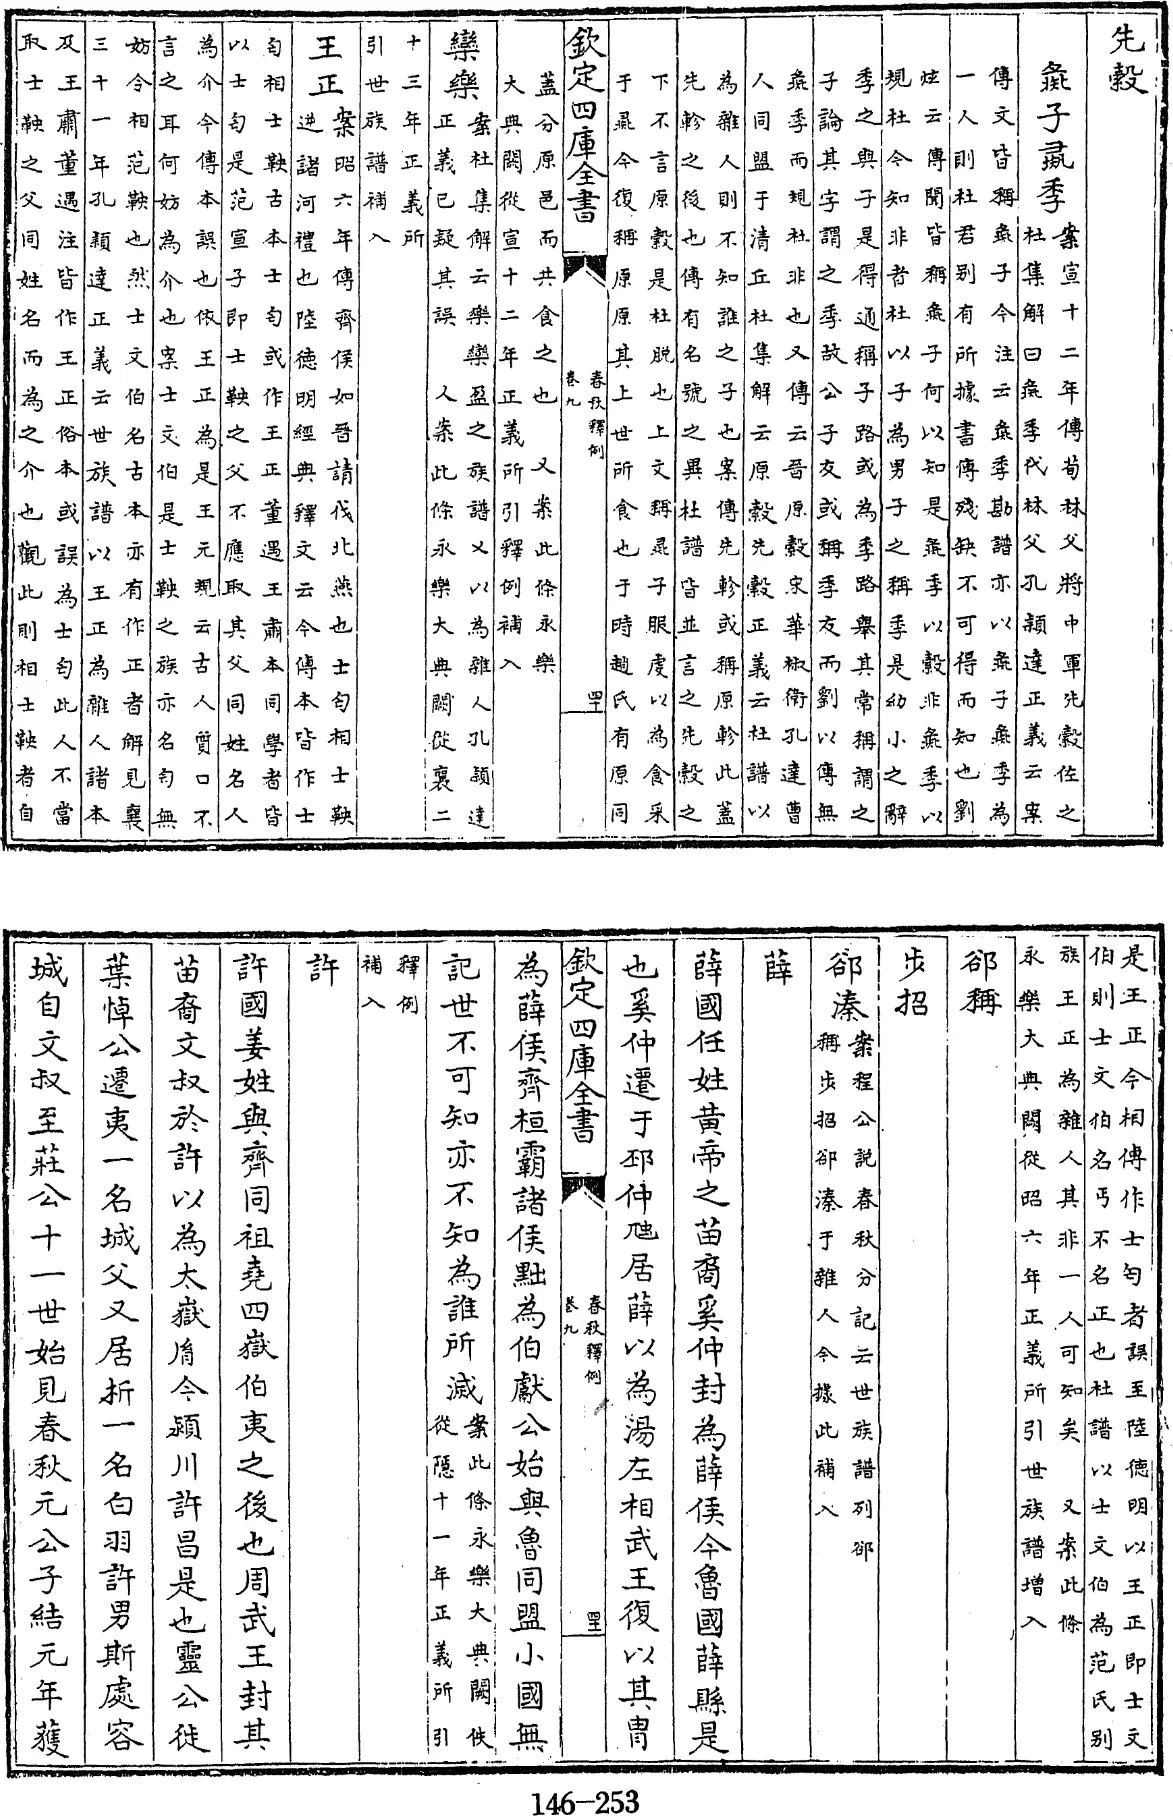 先縠
彘子彘季案宣十二年傳荀林父將中軍先縠佐之
杜集解曰彘季代林父孔頴達正義云案
傳文皆稱彘子今注云彘季勘譜亦以彘子彘季為
一人則杜君别有所據書傳殘缺不可得而知也劉
炫云傳聞皆稱彘子何以知是彘季以縠非彘季以
規杜今知非者杜以子為男子之稱季是幼小之辭
季之與子是得通稱子路或為季路舉其常稱謂之
子論其字謂之季故公子友或稱季友而劉以傳無
彘季而規杜非也又傳云晉原縠宋華椒衛孔達曹
人同盟于清丘杜集解云原縠先縠正義云杜譜以
為雜人則不知誰之子也案傳先軫或稱原軫此蓋
先軫之後也傳有名號之異杜譜皆並言之先縠之
下不言原縠是杜脱也上文稱彘子服虔以為食采
于彘今復稱原原其上世所食也于時趙氏有原同
欽定四庫全書
春秋釋例
卷九
四十
蓋分原邑而共食之也 又案此條永樂
大典闕從宣十二年正義所引釋例補入
欒樂案杜集解云欒樂欒盈之族譜又以為雜人孔頴達
正義已疑其誤 人案此條永樂大典闕從襄二
十三年正義所
引世族譜補入
王正案昭六年傳齊侯如晉請伐北燕也士匄相士鞅
逆諸河禮也陸德明經典釋文云今傳本皆作士
匄相士鞅古本士匄或作王正董遇王肅本同學者皆
以士匄是范宣子即士鞅之父不應取其父同姓名人
為介今傳本誤也依王正為是王元規云古人質口不
言之耳何妨為介也案士文伯是士鞅之族亦名匄無
妨今相范鞅也然士文伯名古本亦有作正者解見襄
三十一年孔頴達正義云世族譜以王正為雜人諸本
及王肅董遇注皆作王正俗本或誤為士匄此人不當
取士鞅之父同姓名而為之介也觀此則相士鞅者自
是王正今相傳作士匄者誤至陸德明以王正即士文
伯則士文伯名丐不名正也杜譜以士文伯為范氏别
族王正為雜人其非一人可知矣 又案此條
永樂大典闕從昭六年正義所引世族譜增入
郤稱
步招
郤溱案程公說春秋分記云世族譜列郤
稱步招郤溱于雜人今據此補入
薛
薛國任姓黄帝之苗裔奚仲封為薛侯今魯國薛縣是
也奚仲遷于邳仲虺居薛以為湯左相武王復以其胄
欽定四庫全書
春秋釋例
卷九
四十一
為薛侯齊桓霸諸侯黜為伯獻公始與魯同盟小國無
記世不可知亦不知為誰所滅案此條永樂大典闕佚
從隱十一年正義所引
釋例
補入
許
許國姜姓與齊同祖堯四嶽伯夷之後也周武王封其
苗裔文叔於許以為太嶽胤今潁川許昌是也靈公徙
葉悼公遷夷一名城父又居析一名白羽許男斯處容
城自文叔至莊公十一世始見春秋元公子結元年獲
146-253